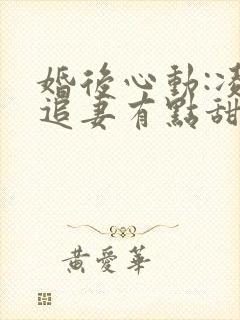 婚後心動:凌
追妻有點甜
黃愛華